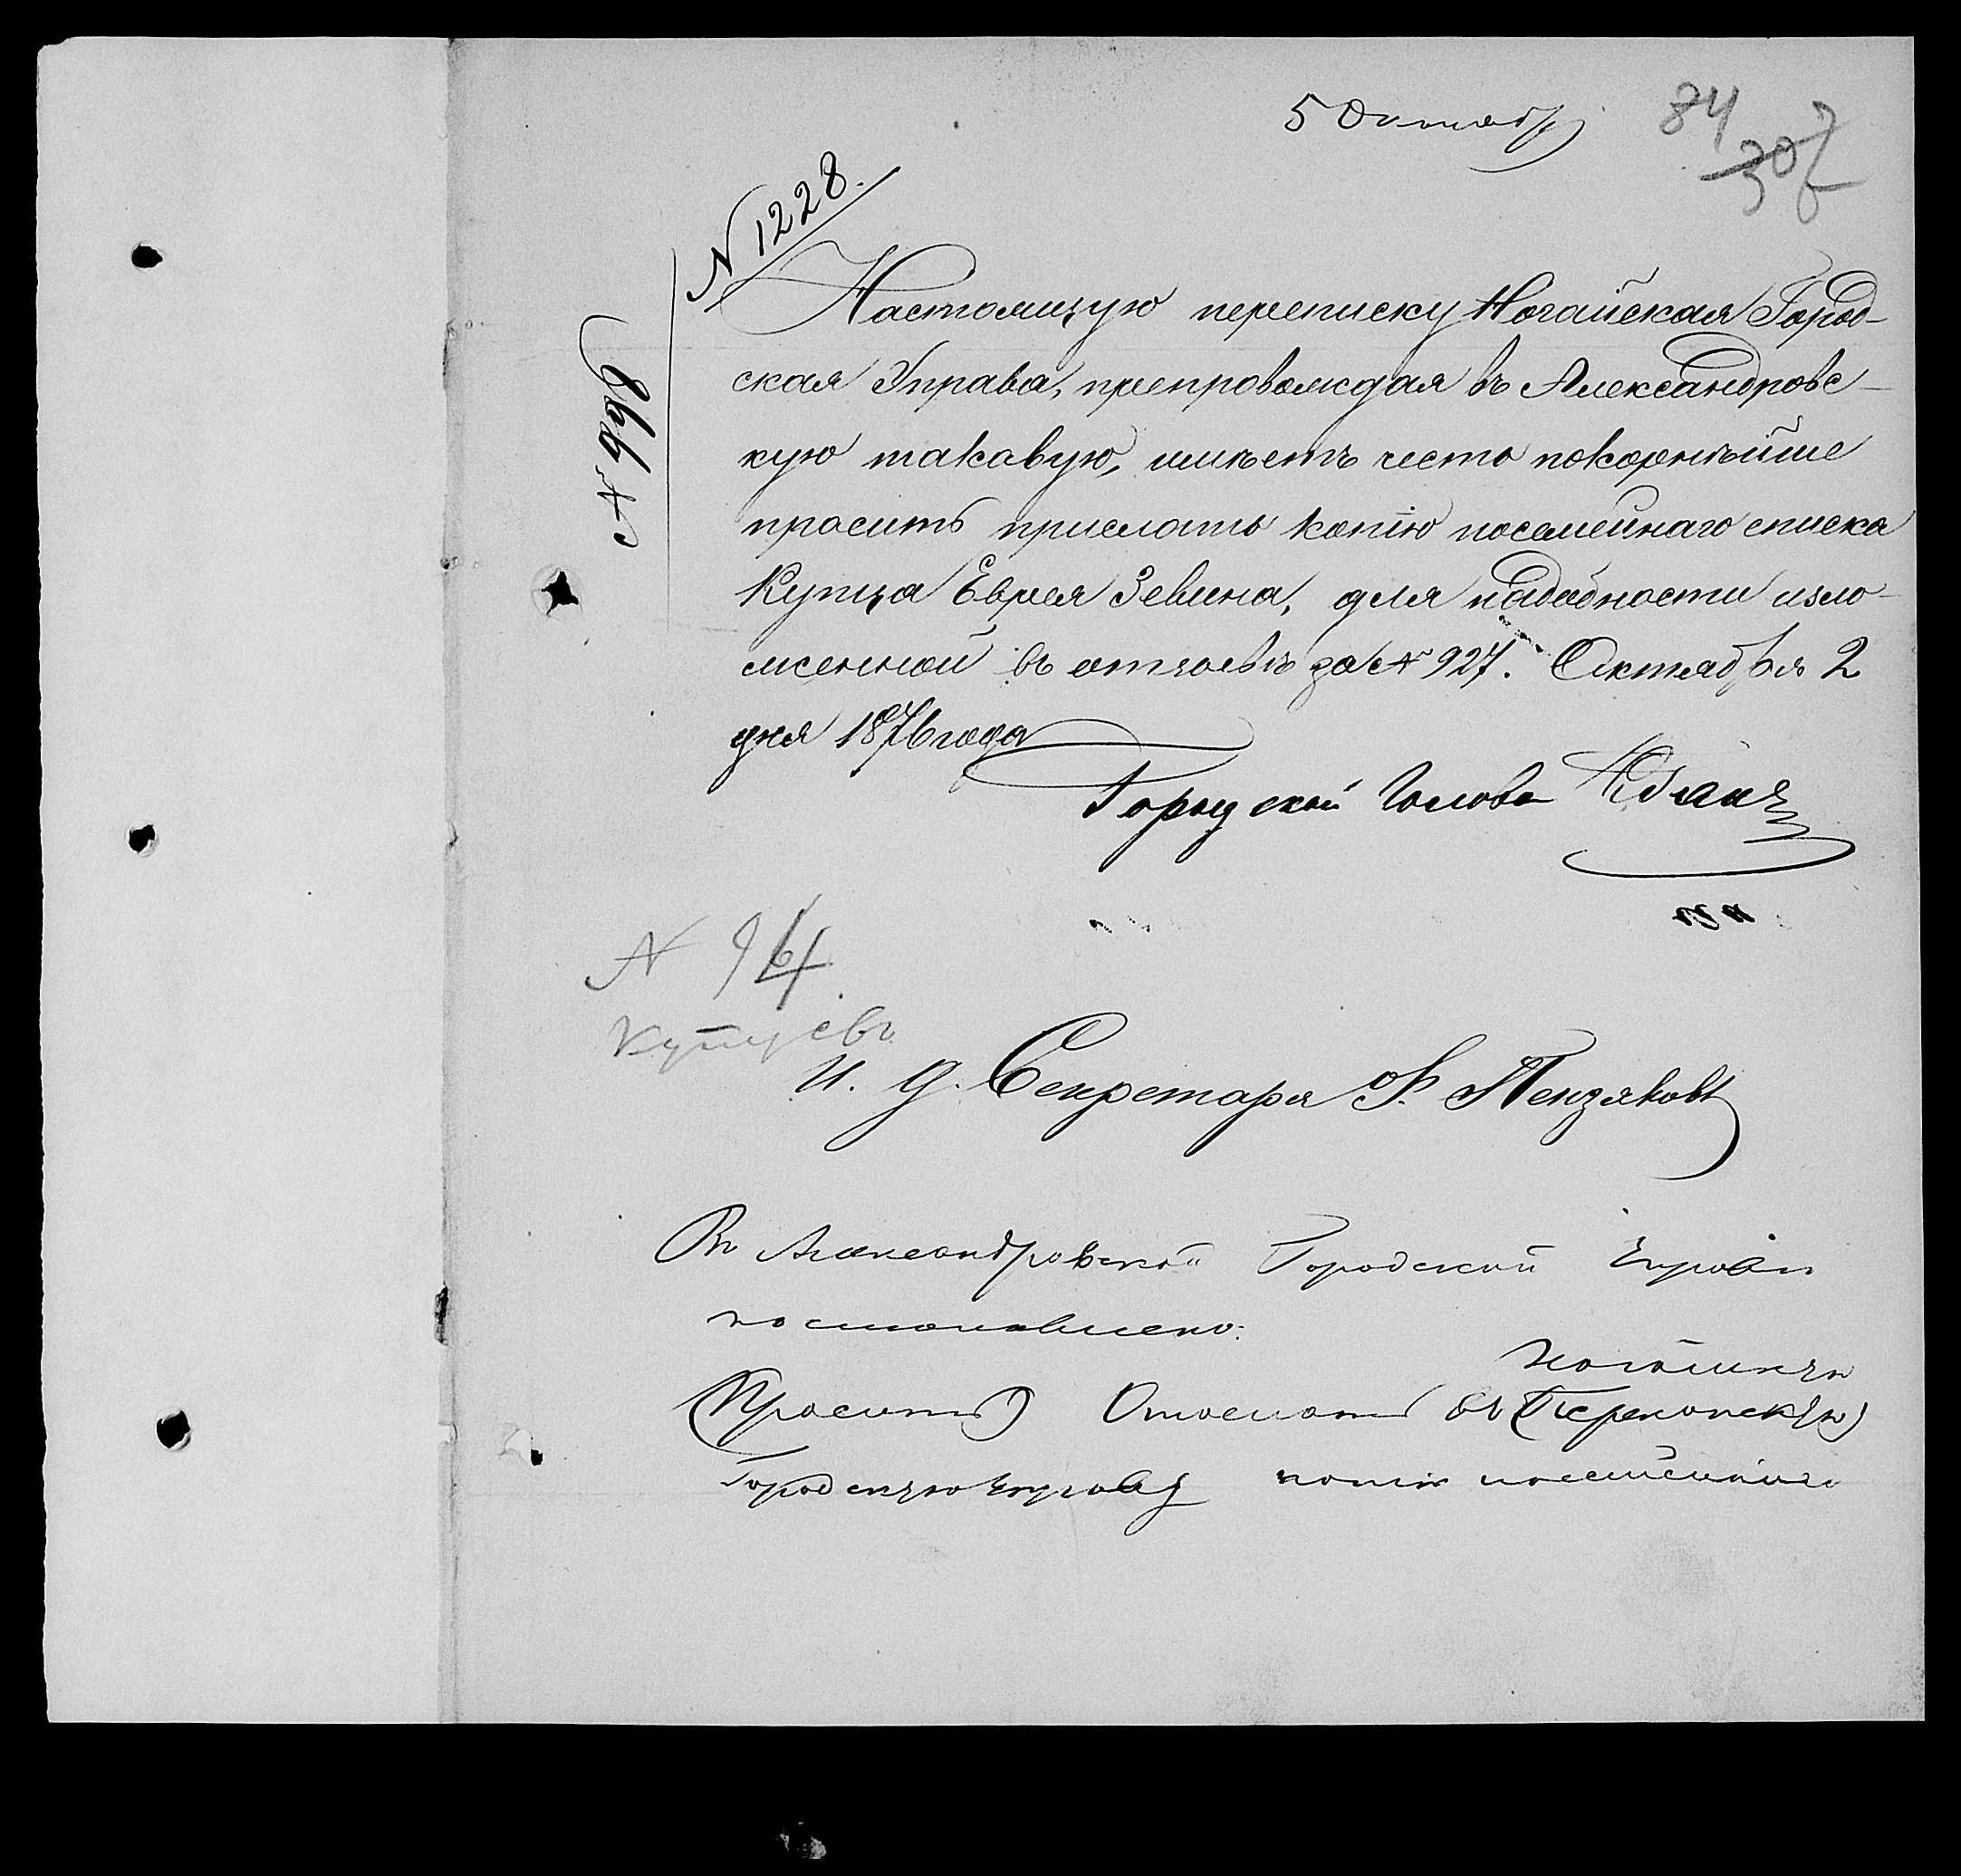 5 Октяб
84
307
№ 1228.
Настоящую переписку Ногайская Город-
ская Управа, препровождая въ Александровс-
кую таковую, имѣетъ честь покорнѣйше
просить прислать копію посемейнаго списка
Купца Еврея Зевина, для надобности изло-
женной въ отзывѣ за № 927. Октября 2
дня 1876 года
Городской Голова
№ 993
№ 94
Купцевъ
И. д. Секретаря Ф. Пензяковъ
Въ Александровской Городской Управѣ
постановлено:
Ногайскую
(Просить) Отослать въ (Перекопскую)
Городскую Управу копію посемейнаго